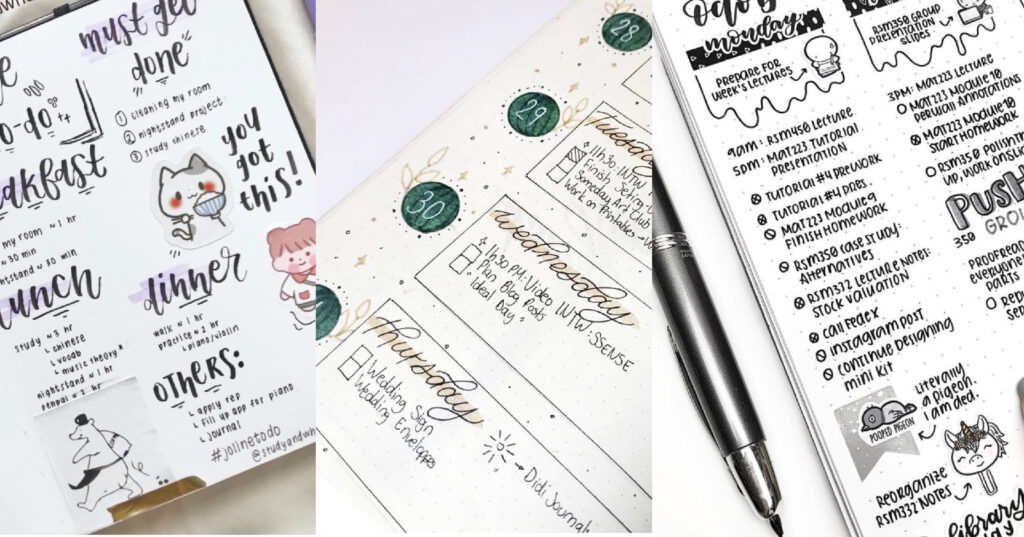 must get
done
① cleaning my room
② nightstand project
③ study chinese
you
got
this!
to-do
breakfast
my room ~ 1 hr
~ 30 min
nightstand ~ 30 min
lunch
study ~ 3 hr
↳ chinese
↳ vocab
↳ music theory
nightstand ~ 1 hr
penpal ~ 2
dinner
walk ~ 1 hr
practice ~ 2 hr
↳ piano/violin
others:
↳ apply rep
↳ fill up app for piano
↳ journal
#jolinetodo
@studyandwh
28
29
Tuesday
11h30: INTW
Someday Art Club
Work on Printables
30
Wednesday
1h30 PM: Video INTW: SSENSE
Plan Blog Posts
"Ideal Day"
Thursday
Wedding Sign
Wedding Envelopes
Didi Journal
monday
Prepare for
week's lectures
9am: RSM450 Lecture
5pm: MAT223 Tutorial
Presentation
Tutorial #4 Prework
Tutorial #4 Pres
MAT223 Module 9
Finish Homework
RSM350 Case Study:
Alternatives
RSM332 Lecture Notes:
Stock Valuation
Call FedEx
Instagram Post
Continue Designing
Mini Kit
Pooped Pigeon
Literally
a pigeon.
I am ded.
Reorganize
RSM332 Notes
RSM350 Group
Presentation
Slides
3pm: MAT223 Lecture
MAT223 Module 10
Perusall Annotations
MAT223 Module 10
Start Homework
RSM350 Polishing
up, work on sl
PUSH
350
GRO
Proofrea
everyone
parts
library